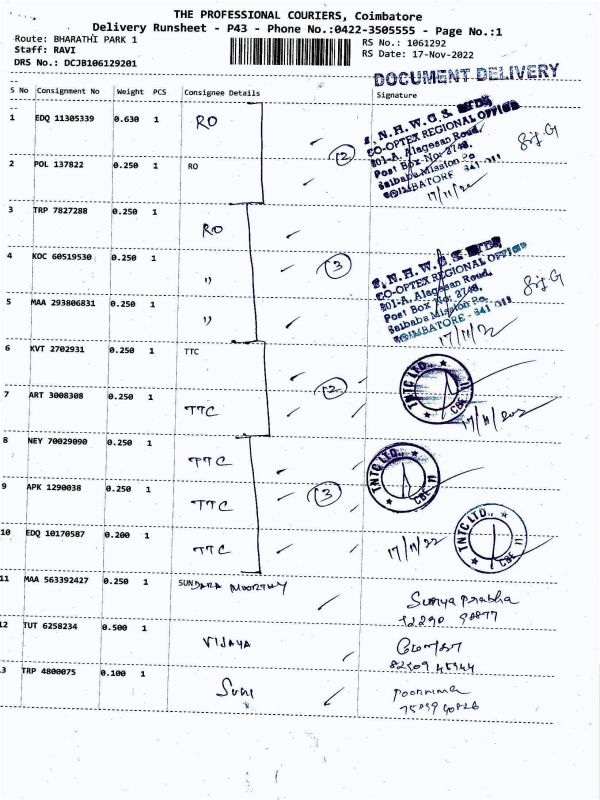 THE PROFESSIONAL COURIERS, Coimbatore
Delivery Runsheet - P43 - Phone No.:0422-3505555 - Page No.:1
Route: BHARATHI PARK 1 RS No.: 1061292
Staff: RAVI RS Date: 17-Nov-2022
DRS No.: DCJB106129201
DOCUMENT DELIVERY
S No Consignment No Weight PCS Consignee Details Signature
1 EDQ 11305339 0.630 1 RO
2
CO-OPTEX REGIONAL OFFICE
201-A, Alagesan Road,
Post Box No: 3748,
Saibaba Mission Po
COIMBATORE - 641 011
17/11/22
2 POL 137822 0.250 1 RO
3 TRP 7827288 0.250 1 RO
4 KOC 60519530 0.250 1 "
3
CO-OPTEX REGIONAL OFFICE
201-A, Alagesan Road,
Post Box No: 3748,
Saibaba Mission Po
COIMBATORE - 641 011
17/11/22
5 MAA 293806831 0.250 1 "
6 KVT 2702931 0.250 1 TTC
2
TNTC LTD., CBE 11
7 ART 3008308 0.250 1 TTC
17/11/202
8 NEY 70029090 0.250 1 TTC
TNTC LTD., CBE 11
9 APK 1290038 0.250 1 TTC
3
10 EDQ 10170587 0.200 1 TTC
17/11/22
TNTC LTD., CBE 11
11 MAA 563392427 0.250 1 SUNDARA MOORTHY
Surya Prabha
12 TUT 6258234 0.500 1 VIJAYA
13 TRP 4800075 0.100 1
Poornima